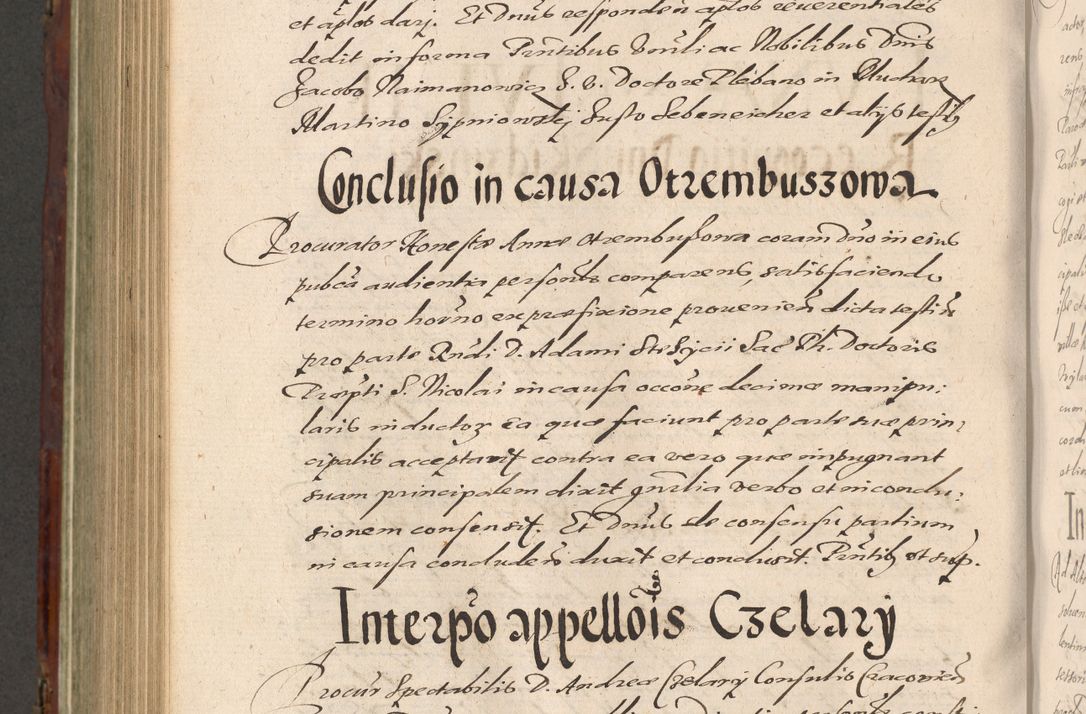 et aplos dari. Et Dnus respondeñ aplos reverentiales
dedit in forma Prntibus Venli ac Nobilibus Dnis
Jacobo Naimanowicz S. V. Doctore Plebano in Mucharz
Martino Sypniowskj Justo Sebeneicher et alijs testib
Conclusio in causa Otrembuszowa
Procurator Honestæ Annæ Otrembussowa coram Dno in eius
pubca audientia personlr comparens, satisfaciendo
termino hodrno ex præfixione provenieñ dicta testiũ
pro parte Rndi D. Adami Steligii Sac Th. Doctoris
Præpti S. Nicolai in causa occõne decimæ manipu:
laris inductor ea quæ faciunt pro parte suæ prin:
cipalis acceptavit contra ea vero quæ impugnant
suam principalem dixit gnrlia verbo et in conclu:
sionem consensit. Et Dnus de consensu partium
in causa concludeñ duxit et conclusit. Prntib ut sup.
Interpõ appellõis Czelary
Procur Spectabilis D. Andreæ Czelary Consulis Cracovieñ